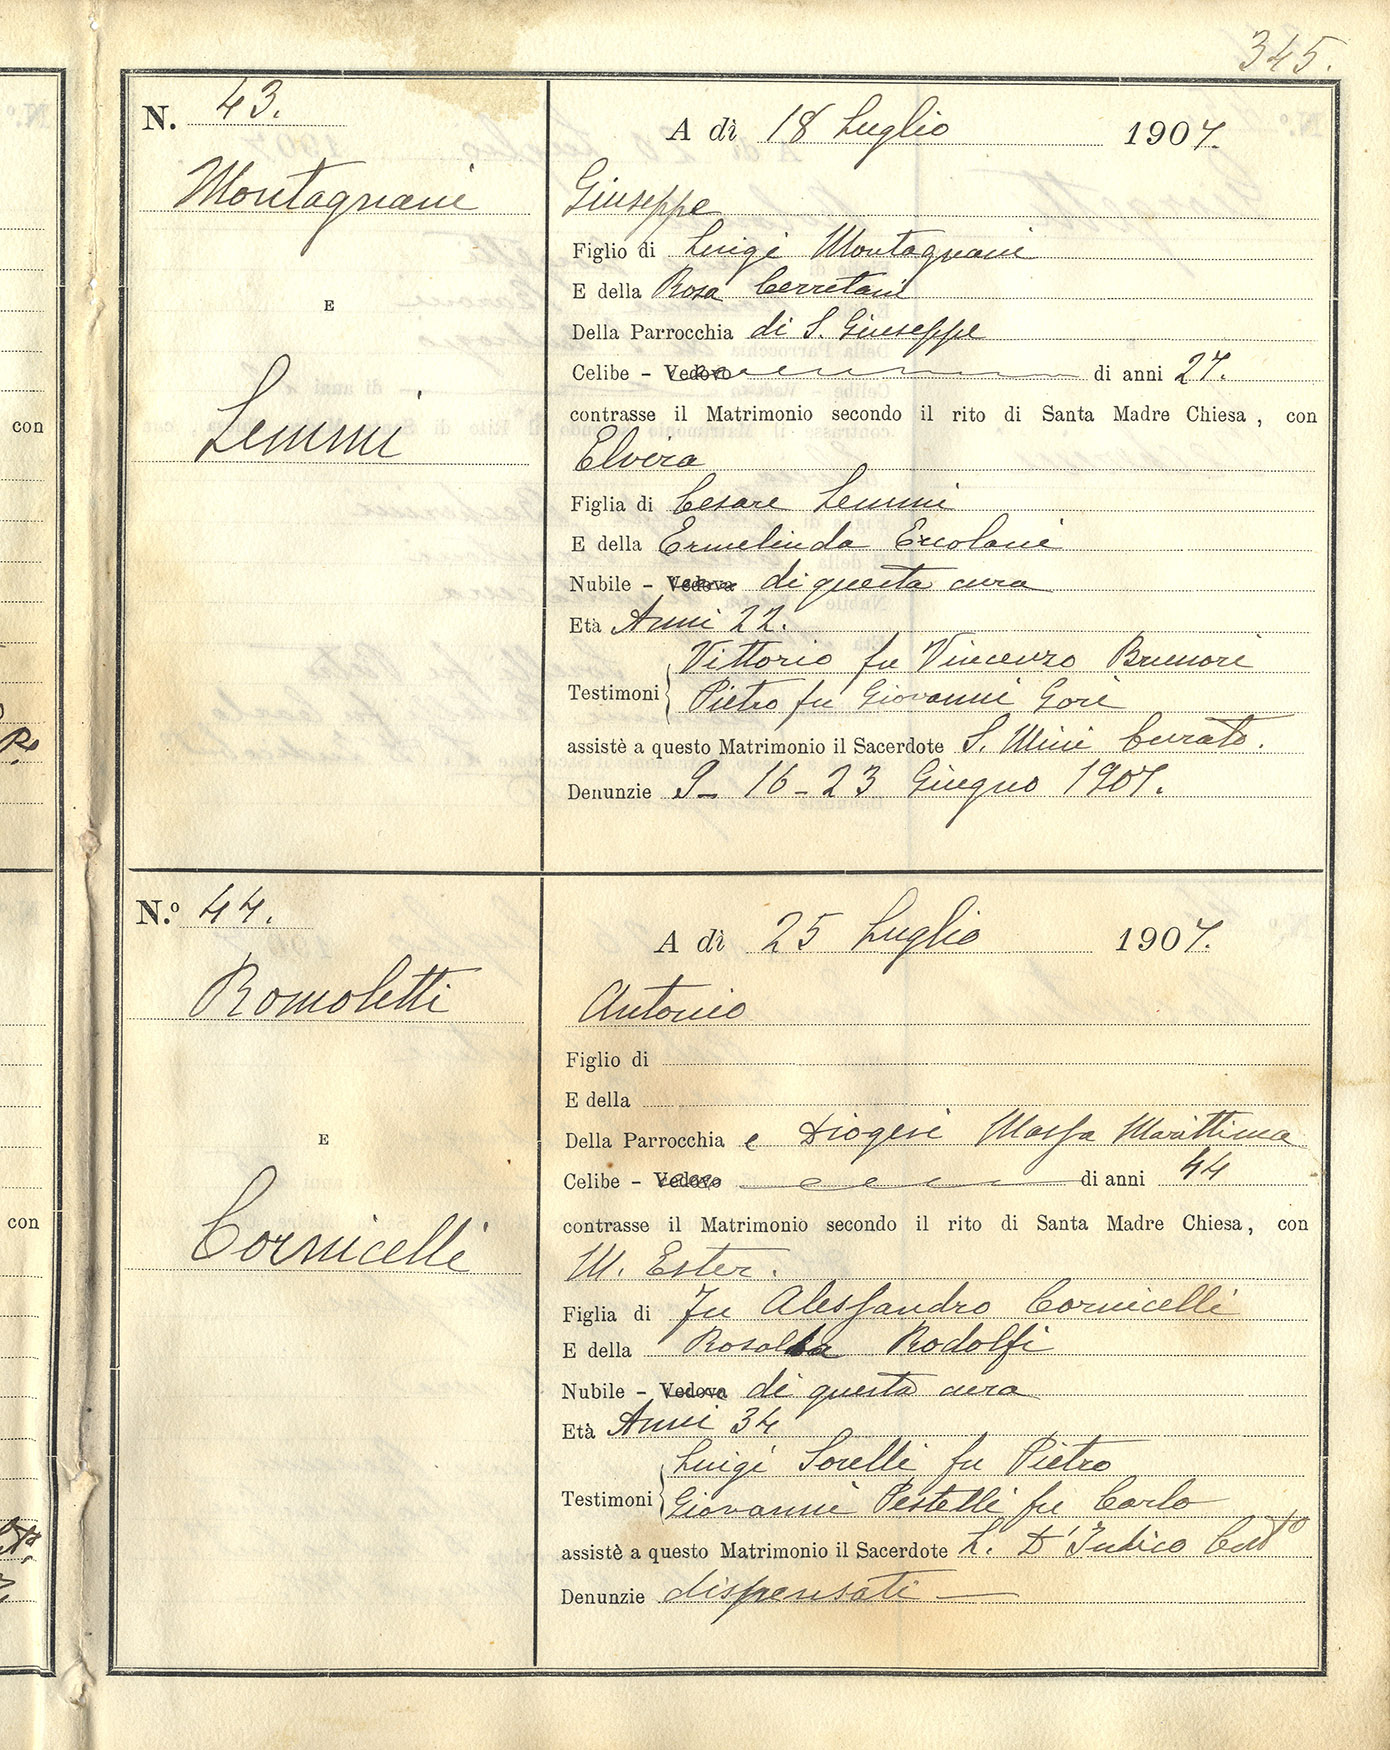 345.
N. 43.
Montagnani
E
Lemmi
A dì 18 Luglio 1907.
Giuseppe
Figlio di Luigi Montagnani
E della Rosa Cerretani
Della Parrocchia di S. Giuseppe
Celibe – Vedovo di anni 27.
contrasse il Matrimonio secondo il rito di Santa Madre Chiesa, con
Elvira
Figlia di Cesare Lemmi
E della Ermelinda Ercolani
Nubile – Vedova di questa cura
Età Anni 22.
Testimoni Vittorio fu Vincenzo Brunori
Pietro fu Giovanni Gori
assistè a questo Matrimonio il Sacerdote S. Mini Curato.
Denunzie 9 – 16 – 23 Giugno 1907.
N.º 44.
Romoletti
E
Cornicelli
A dì 25 Luglio 1907.
Antonio
Figlio di
E della
Della Parrocchia e Diogesi Massa Marittima
Celibe – Vedovo di anni 44
contrasse il Matrimonio secondo il rito di Santa Madre Chiesa, con
M. Ester.
Figlia di Fu Alessandro Cornicelli
E della Rosalba Rodolfi
Nubile – Vedova di questa cura
Età Anni 34
Testimoni Luigi Sorelli fu Pietro
Giovanni Pestelli fu Carlo
assistè a questo Matrimonio il Sacerdote L. D'Indico
Denunzie dispensati —
con
con